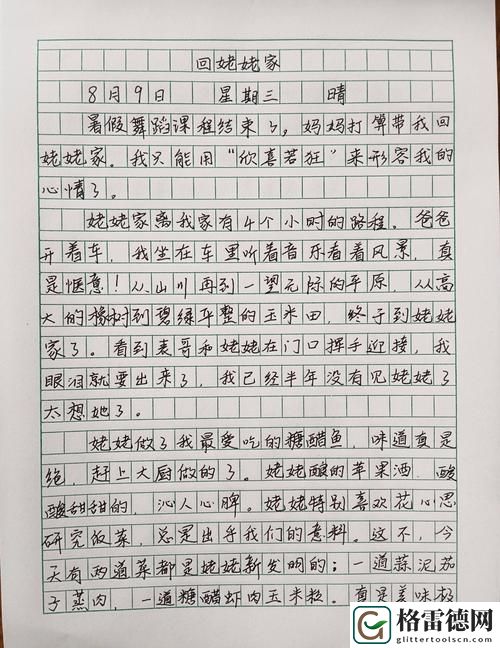 回姥姥家
8月9日 星期三 晴
暑假舞蹈课程结束了，妈妈打算带我回
姥姥家。我只能用“欣喜若狂”来形容我的
心情了。
姥姥家离我家有4个小时的路程。爸爸
开着车，我坐在车里听着音乐看着风景，真
是惬意！从山川再到一望无际的平原，从高
大的杨树到碧绿平整的玉米田，终于到姥姥
家了。看到表哥和姥姥在门口挥手迎接，我
眼泪就要出来了，我已经半年没有见姥姥了
太想她了。
姥姥做了我最爱吃的糖醋鱼，味道真是
绝，赶上大厨做的了。姥姥酿的苹果酒，酸
酸甜甜的，沁人心脾。姥姥特别喜欢花心思
研究饭菜，总是出乎我们的意料。这不，今
天有两道菜都是姥姥新发明的；一道蒜泥茄
子蒸肉，一道糖醋虾肉玉米粒。真是美味极
格雷德网
glittertoolscn.com